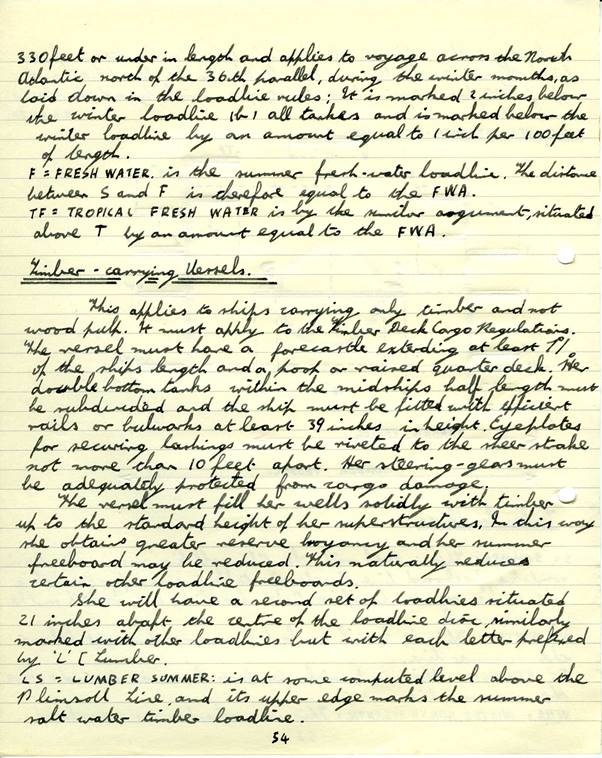 330 feet or under in length and applies to voyage across the North
Atlantic north of the 36.th parallel, during the winter months, as
laid down in the loadline rules: It is marked 2 inches below
the winter loadline (b) all tankes and is marked below the
winter loadline by an amount equal to 1 inch per 100 feet
of length.
F = FRESH WATER. is the summer fresh-water loadline. The distance
between S and F is therefore equal to the FWA.
TF = TROPICAL FRESH WATER is by the similar argument, situated
above T by an amount equal to the FWA.
Timber - carrying Vessels.
This applies to ships carrying only timber and not
wood pulp. It must apply to the Timber Deck Cargo Regulations.
The vessel must have a forecastle extending at least 7%
of the ships length and a poop or raised quarter deck. Her
double bottom tanks within the midships half length must
be subdivided and the ship must be fitted with efficient
rails or bulwarks at least 39 inches in height. Eyeplates
for securing lashings must be riveted to the sheer strake
not more than 10 feet apart. Her steering-gears must
be adequately protected from cargo damage.
The vessel must fill her wells solidly with timber
up to the standard height of her superstructures. In this way
she obtains greater reserve buoyancy and her summer
freeboard may be reduced. This naturally reduces
certain other loadline freeboards.
She will have a second set of loadlines situated
21 inches abaft the centre of the loadline disc, similarly
marked with other loadlines but with each letter prefixed
by 'L' [ Lumber.
LS = LUMBER SUMMER: is at some computed level above the
Plimsoll Line, and its upper edge marks the summer
salt water timber loadline.
54